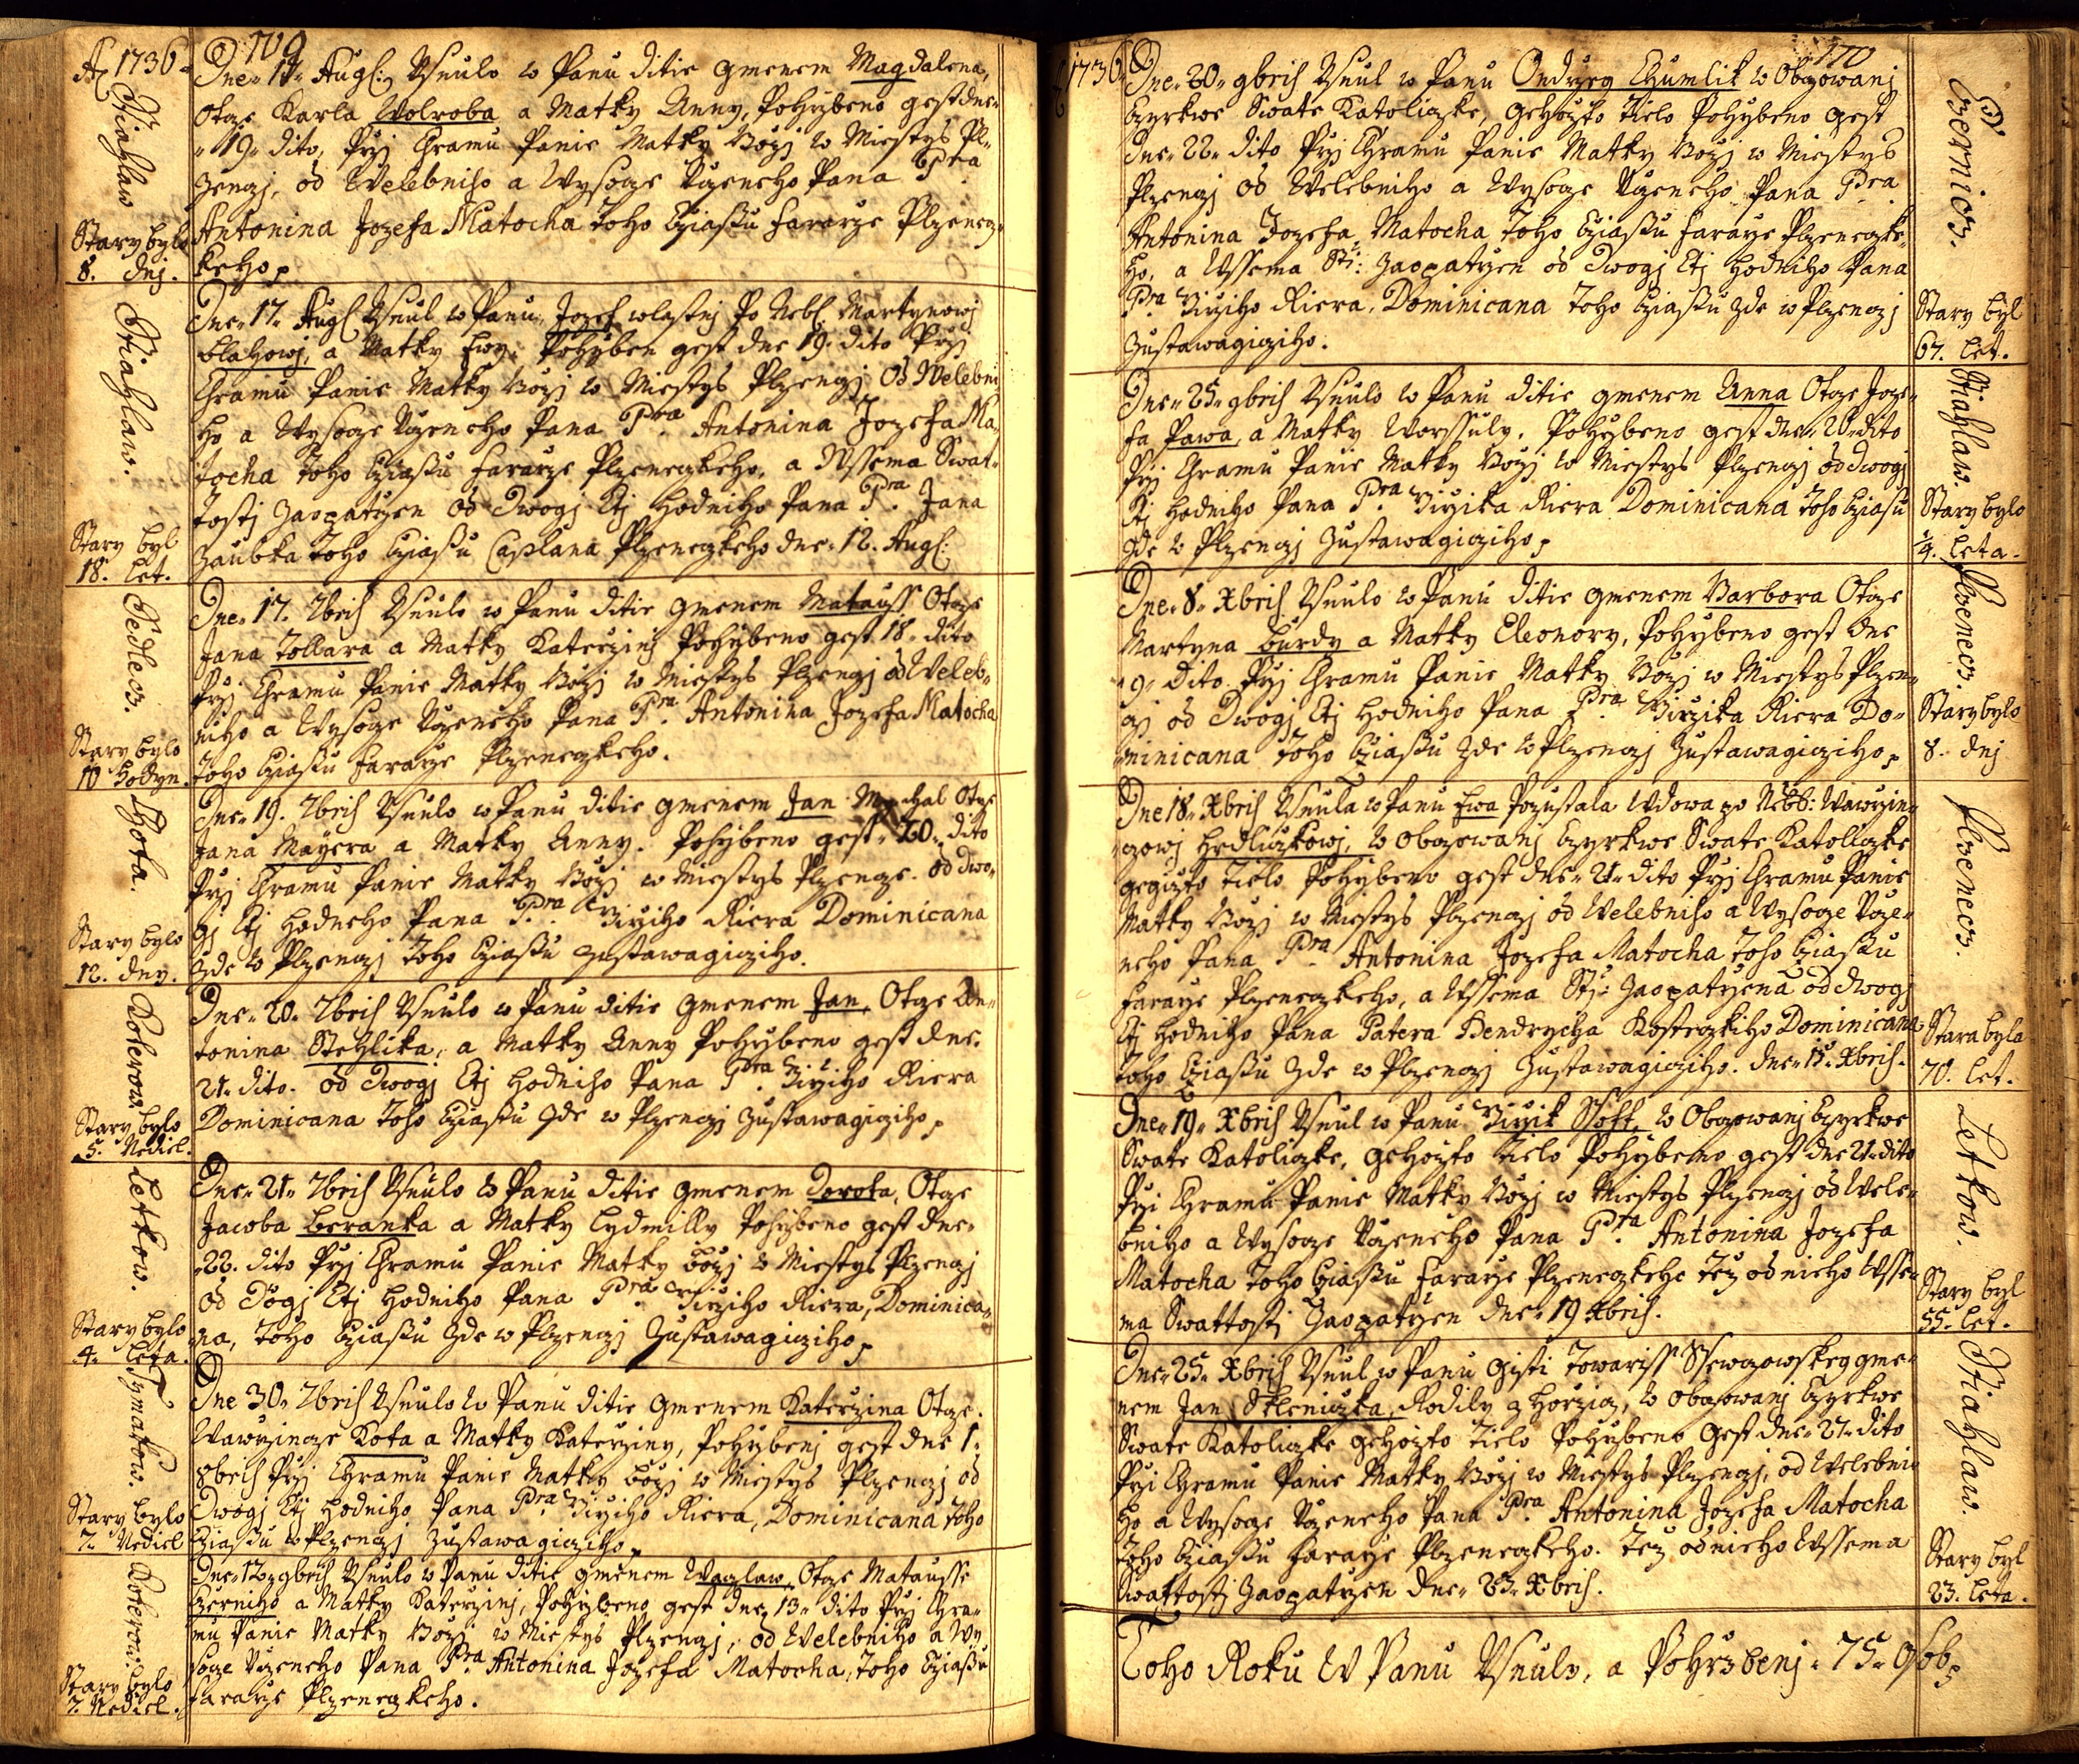 A 1736
709
Dne 17 Augs: Usnulo w Panu ditie gmenem Magdalena,
Otcze Karla Wolroba a Matky Anny, Pohrzbeno gest dne
19 dito, Przj Chramu Panie Matky Bozj w Miestys Pl-
zenczj, od Welebniho a Wysocze Uczeneho Pana Pra
Antonina Jozefa Matocha toho Cziassu fararze Plzenecz-
keho.
Stiahlaw
Stary bylo
8. dnj.
Dne 17. Augs Usnul w Panu Jozef wlastnj Po Nebs Martynowj
blahowj, a Matky Ewy. Pohrzben gest dne 19. dito Przj
Chramu Panie Matky Bozj w Miestys Plzenczj Od Welebni
ho a Wysocze Uczeneho Pana Pra Antonina Jozefa Ma-
tocha toho Cziassu fararze Plzeneczkeho, a Wssema Swat-
tostj Zaopatrzen od Dwogj Ctj hodniho Pana Pra Jana
Zaubka toho Cziassu Caplana Plzeneczkeho dne 12. Augs:
Stiahlaw.
Stary byl
18. let.
Dne 17. 7bris Usnulo w Panu ditie gmenem Matauss Otcze
Jana Tollara a Matky Katerzinj Pohrzbeno gest 18 dito
Przj Chramu Panie Matky Bozj w Miestys Plzenczj od Weleb-
niho a Wysocze Uczeneho Pana Pra Antonina Jozefa Matocha
toho Cziassu fararze Plzeneczkeho.
Sedlecz.
Stary bylo
10 hodyn.
Dne 19. 7bris Usnulo w Panu ditie gmenem Jan Mychal Otcze
Jana Mayera a Matky Anny. Pohrzbeno gest 20. dito
Przj Chramu Panie Matky Bozj w Miestys Plzencze. od Dwo-
gj Ctj hodneho Pana Pra Girziho Riera Dominicana
Zde w Plzenczj toho Cziassu zustawagicziho.
Lhota.
Stary bylo
12. dny.
Dne 20. 7bris Usnulo w Panu ditie gmenem Jan, Otcze An-
tonina Stehlika, a Matky Anny Pohrzbeno gest dne
21. dito. od Dwogj Ctj hodniho Pana Pra Girziho Riera
Dominicana toho Cziassu Zde w Plzenczj Zustawagicziho.
Koterow.
Stary bylo
5. Nediel.
Dne 21 7bris Usnulo w Panu ditie gmenem Dorota, Otcze
Jacoba beranka a Matky Lydmilly Pohrzbeno gest dne
22. dito Przj Chramu Panie Matky bozj w Miestys Plzenczj
od Dogj Ctj hodniho Pana Pra Girziho Riera, Dominica-
na, toho Cziassu Zde w Plzenczj Zustawagicziho.
Letkow.
Stary bylo
4. leta.
Dne 30. 7bris Usnulo w Panu ditie Gmenem Katerzina Otcze.
Wawrzincze Kota a Matky Katerziny, Pohrzbenj gest dne 1.
8bris Przj Chramu Panie Matky bozj w Miestys Plzenczj od
Dwogj Ctj hodniho Pana Pra Girziho Riera, Dominicana toho
Cziassu w Plzenczj Zustawagicziho.
Tymakow.
Stary bylo
7. Nediel
Dne 12 9bris Usnulo w Panu ditie gmenem Waczlaw, Otcze Matausse
Czerniho a Matky Katerzinj, Pohrzbeno gest dne 13 dito Przj Chra-
mu Panie Matky Bozj w Miestys Plzenczj, od Welebniho a Wy
socze Uczeneho Pana Pra Antonina Jozefa Matocha, toho Cziassu
fararze Plzeneczkeho.
Koterow
Stary bylo
7. Nediel.
1736
170
Dne 20 9bris Usnul w Panu Ondrzeg Chumlik w Obczowanj
Czyrkwe Swate Katoliczke, gehozto tielo Pohrzbeno gest
dne 22 dito Przj Chramu Panie Matky Bozj w Miestys
Plzenczj od Welebniho a Wysocze Uczeneho Pana Pra
Antonina Jozefa Matocha toho Cziassu fararze Plzeneczke-
ho, a Wssema Sti: Zaopatrzen od Dwogj Ctj hodniho Pana
Pra Girziho Riera, Dominicana toho Cziassu Zde w Plzenczj
Zustawagicziho.
Czernicz.
Stary byl
67. let.
Dne 25 9bris Usnulo w Panu ditie gmenem Anna Otcze Joze-
fa Pawa, a Matky Worssuly. Pohrzbeno gest dne 26 dito
Przj Chramu Panie Matky Bozj w Miestys Plzenczj od Dwogj
Ctj hodniho Pana Pra Girzika Riera Dominicana toho Cziassu
Zde w Plzenczj Zustawagicziho.
Stiahlaw.
Stary bylo
4. leta.
Dne 8 Xbris Usnulo w Panu ditie gmenem Barbora Otcze
Martyna burdy a Matky Eleonory, Pohrzbeno gest dne
9 dito Przj Chramu Panie Matky Bozj w Miestys Plzen-
czj od Dwogj Ctj hodniho Pana Pra Girzika Riera Do-
minicana toho Cziassu Zde w Plzenczj Zustawagicziho.
Plzenecz.
Stary bylo
8. dnj
Dne 18 Xbris Usnula w Panu Ewa Pozustala Wdowa po Nebb: Wawrzin-
czowj Hedliczkowj, w Obczowanj Czyrkwe Swate Katoliczke
gegizto Tielo Pohrzbeno gest dne 21 dito Przj Chramu Panie
Matky Bozj w Miestys Plzenczj od Welebniho a Wysocze Ucze-
neho Pana Pra Antonina Jozefa Matocha toho Cziassu
fararze Plzeneczkeho, a Wssema Stj: Zaopatrzena od Dwogj
Ctj hodniho Pana Patera Hendrycha Kosteczkiho Dominicana
toho Cziassu Zde w Plzenczj Zustawagicziho. dne 15 Xbris.
Plzenecz.
Stara byla
70. let.
Dne 19 Xbris Usnul w Panu Girzik Ssoft, w Obczowanj Czyrkwe
Swate Katoliczke, gehozto Tielo Pohrzbeno gest dne 21 dito
Przi Chramu Panie Matky Bozj w Miestys Plzenczj od Wele-
bniho a Wysocze Uczeneho Pana Pra Antonina Jozefa
Matocha toho Cziassu fararze Plzeneczkeho tez od nieho Wsse-
ma Swattostj Zaopatrzen dne 19 Xbris.
Letkow.
Stary byl
55. let.
Dne 25 Xbris Usnul w Panu Gisti Towariss Ssewczowskeg gme-
nem Jan Skleniczka, Rodily z Horzicz, w Obczowanj Czyrkwe
Swate Katoliczke gehozto Tielo Pohrzbeno Gest dne 27 dito
Przi Chramu Panie Matky Bozj w Miestys Plzenczj, od Welebni-
ho a Wysocze Uczeneho Pana Pra Antonina Jozefa Matocha
toho Cziassu fararze Plzeneczkeho. tez od nieho Wssema
Swattostj Zaopatrzen dne 23 Xbris.
Stiahlaw.
Stary byl
23. leta.
Toho Roku W Panu Usnulo, a Pohrzbenj 75 Osob